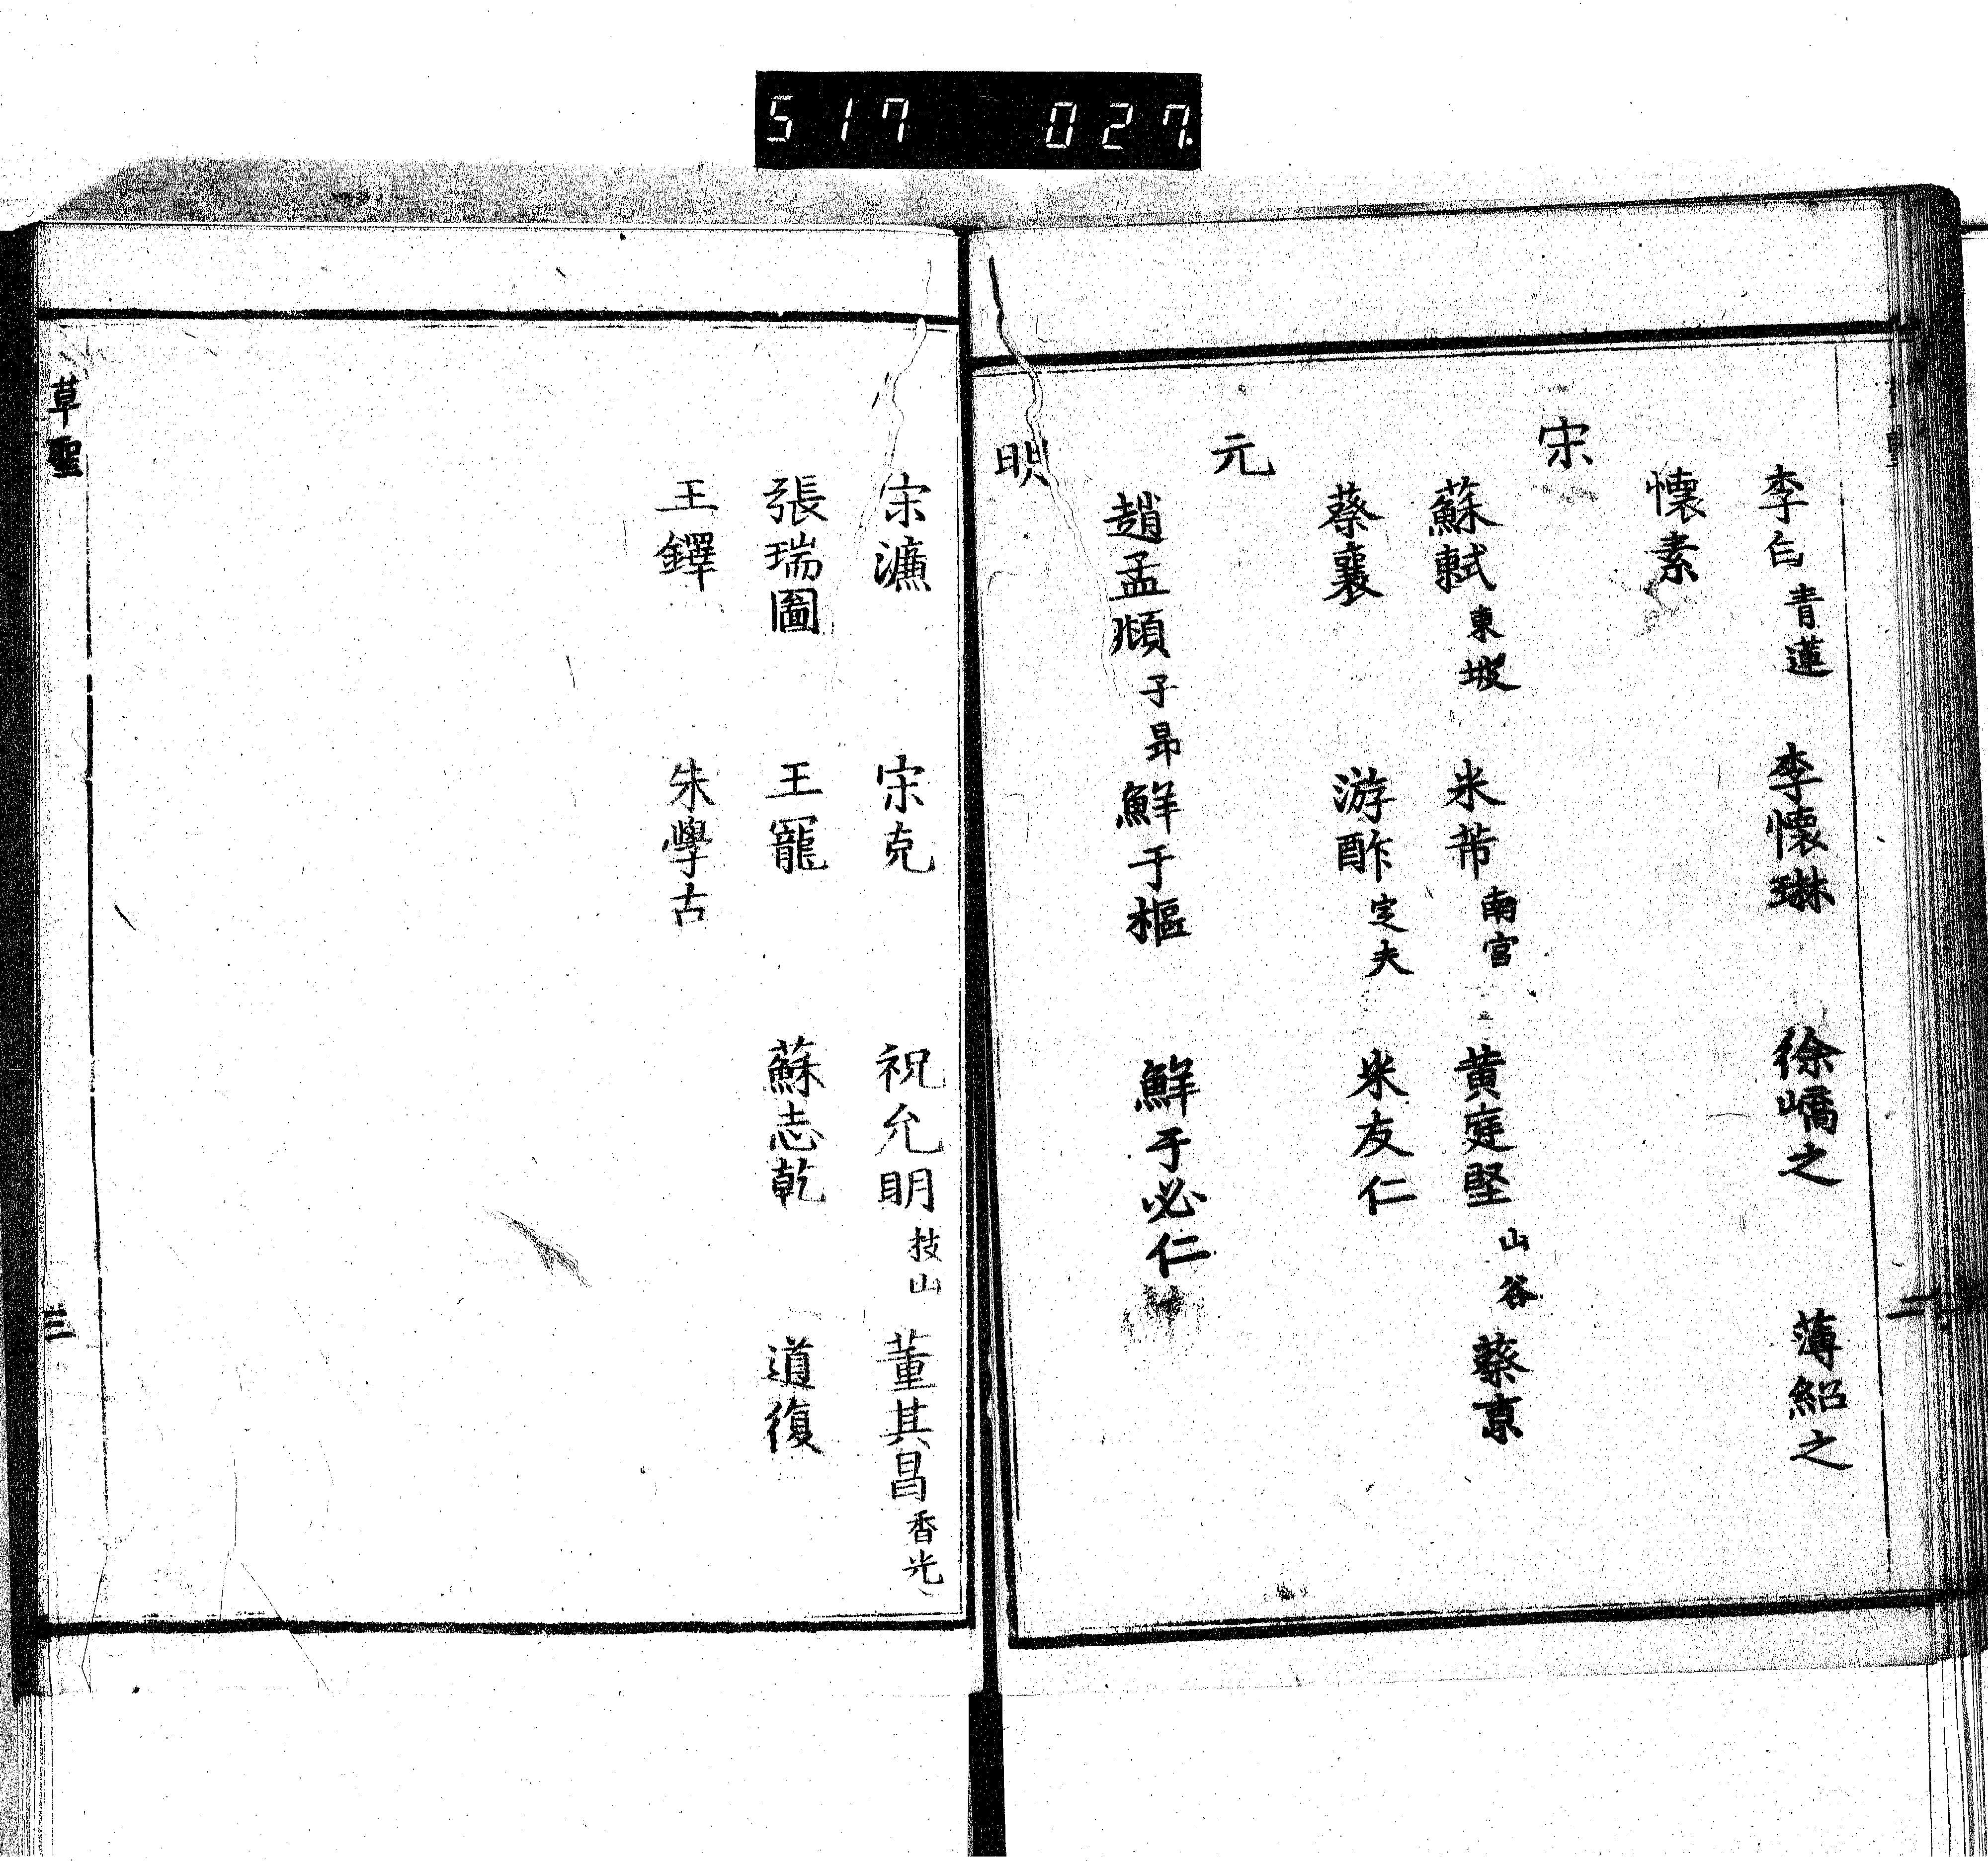 517 027
李白 青蓮 李懷琳 徐嶠之 薄紹之
懷素
宋
蘇軾 東坡 米芾 南宮 黃庭堅 山谷 蔡京
蔡襄 游酢 定夫 米友仁
元
趙孟頫 子昂 鮮于樞 鮮于必仁
明
宋濂 宋克 祝允明 技山 董其昌 香光
張瑞圖 王寵 蘇志乾 道復
王鐸 朱學古
草聖
三